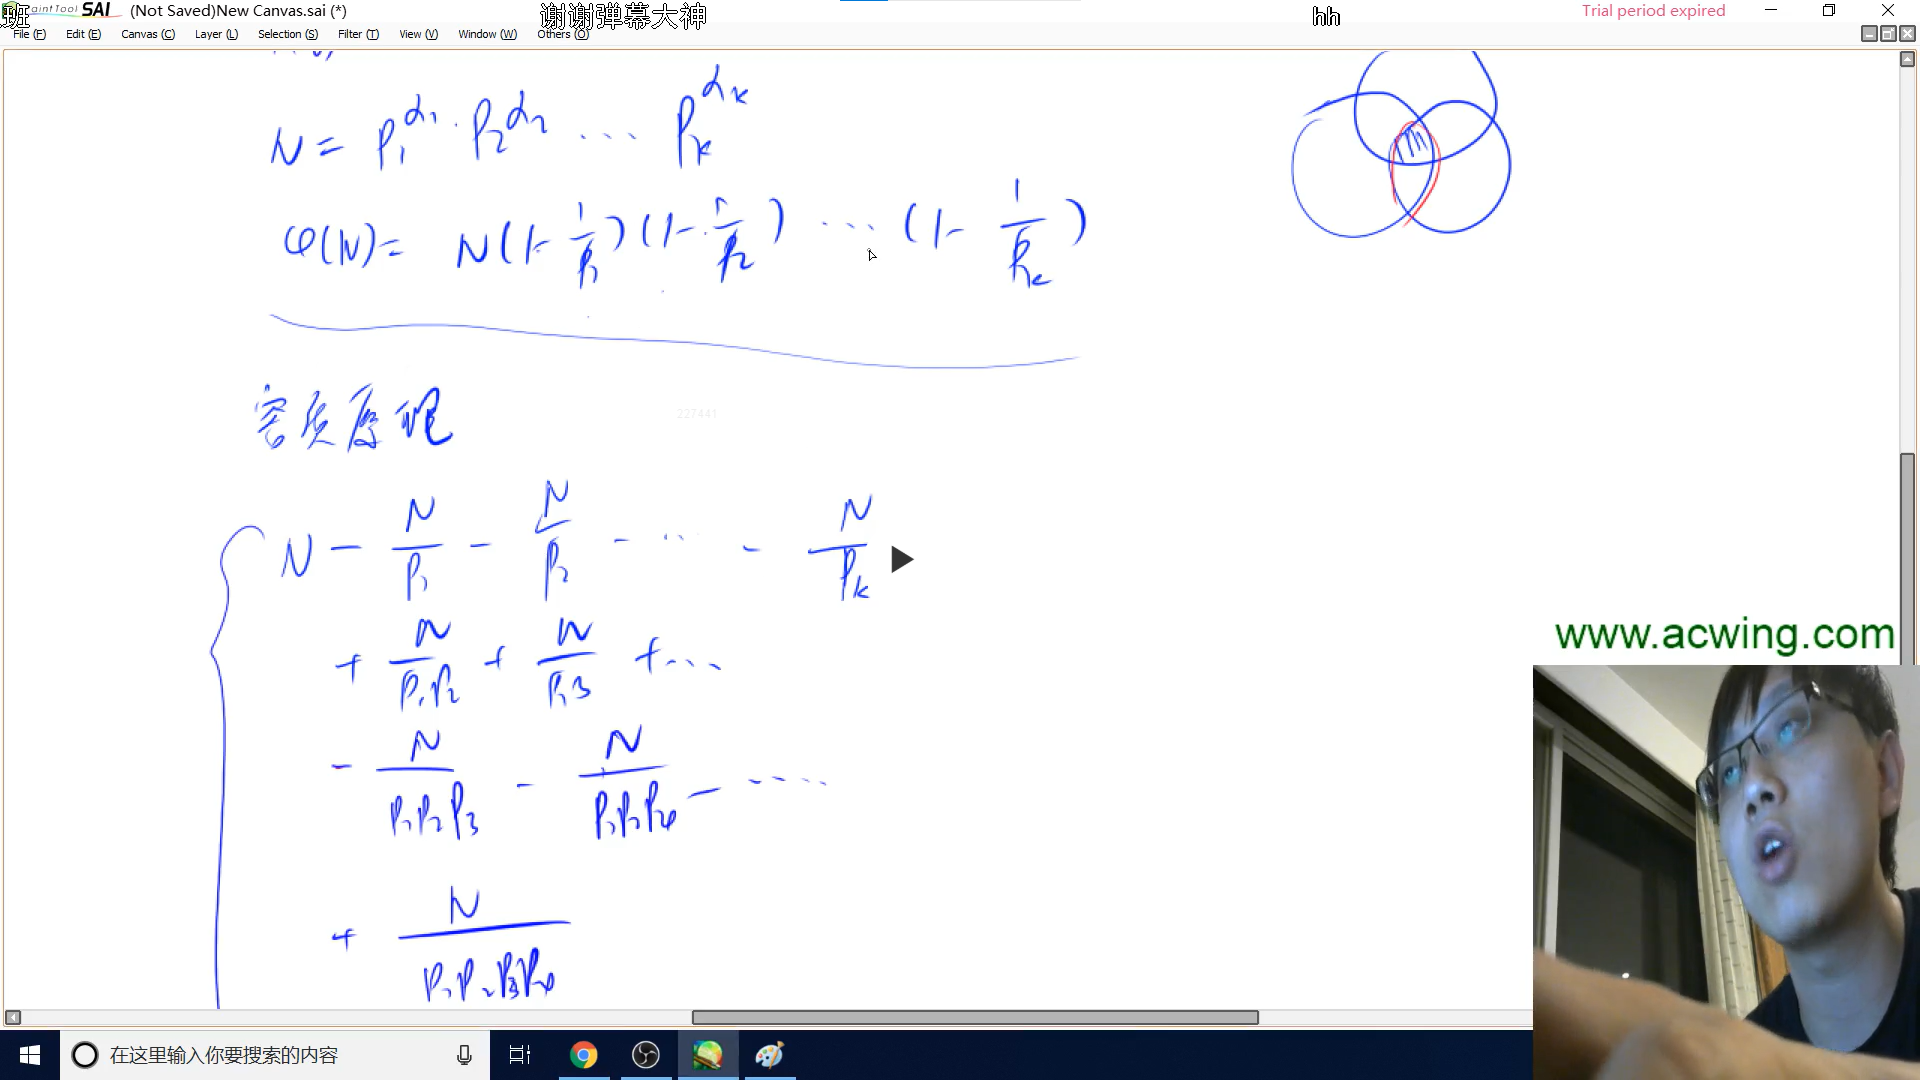 班 谢谢弹幕大神 hh
PaintTool SAI (Not Saved)New Canvas.sai (*) Trial period expired
File (F) Edit (E) Canvas (C) Layer (L) Selection (S) Filter (T) View (V) Window (W) Others (O)
N = P₁^α₁ · P₂^α₂ ⋯ Pₖ^αₖ
φ(N) = N(1-1/P₁)(1-1/P₂) ⋯ (1-1/Pₖ)
容斥原理
227441
N - N/P₁ - N/P₂ - ⋯ - N/Pₖ
+ N/P₁P₂ + N/P₁3 + ⋯
- N/P₁P₂P₃ - N/P₁P₂P₄ - ⋯
+ N/P₁P₂P₃P₄
www.acwing.com
在这里输入你要搜索的内容